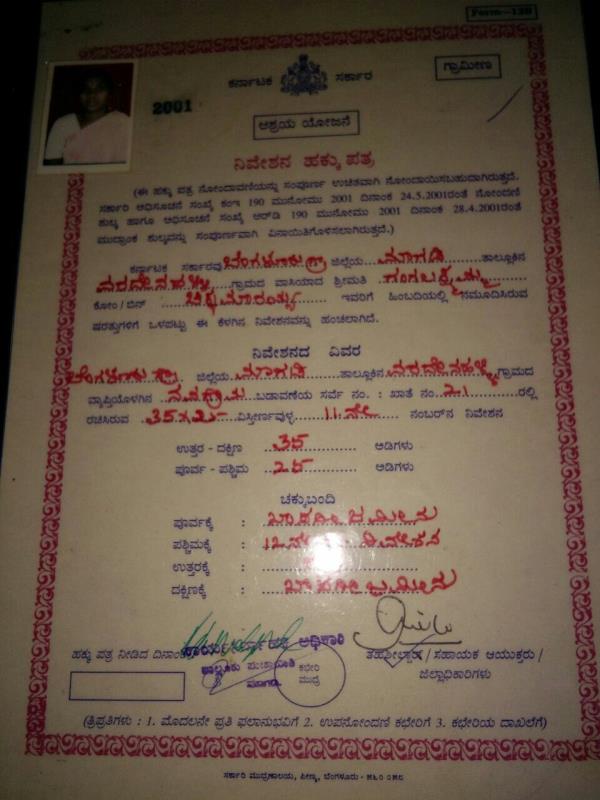 Form-12B
ಕರ್ನಾಟಕ ಸರ್ಕಾರ
ಗ್ರಾಮೀಣ
2001
ಆಶ್ರಯ ಯೋಜನೆ
ನಿವೇಶನ ಹಕ್ಕು ಪತ್ರ
(ಈ ಹಕ್ಕು ಪತ್ರ ನೋಂದಾವಣೆಯನ್ನು ಸಂಪೂರ್ಣ ಉಚಿತವಾಗಿ ನೋಂದಾಯಿಸಬಹುದಾಗಿರುತ್ತದೆ.
ಸರ್ಕಾರಿ ಅಧಿಸೂಚನೆ ಸಂಖ್ಯೆ ಕಂಇ 190 ಮುನೋಮು 2001 ದಿನಾಂಕ 24.5.2001ರಂತೆ ನೋಂದಣಿ
ಶುಲ್ಕ ಹಾಗೂ ಅಧಿಸೂಚನೆ ಸಂಖ್ಯೆ ಆರ್‌ಡಿ 190 ಮುನೋಮು 2001 ದಿನಾಂಕ 28.4.2001ರಂತೆ
ಮುದ್ರಾಂಕ ಶುಲ್ಕವನ್ನು ಸಂಪೂರ್ಣವಾಗಿ ವಿನಾಯಿತಿಗೊಳಿಸಲಾಗಿರುತ್ತದೆ.)
ಕರ್ನಾಟಕ ಸರ್ಕಾರವು ಬೆಂಗಳೂರು ಗ್ರಾ ಜಿಲ್ಲೆಯ ಮಾಗಡಿ ತಾಲ್ಲೂಕಿನ
ವರದೇನಹಳ್ಳಿ ಗ್ರಾಮದ ವಾಸಿಯಾದ ಶ್ರೀಮತಿ ಗಂಗಲಕ್ಷ್ಮಮ್ಮ
ಕೋಂ/ಬಿನ್ ಚಿಕ್ಕಮಾರಯ್ಯ ಇವರಿಗೆ ಹಿಂಬದಿಯಲ್ಲಿ ನಮೂದಿಸಿರುವ
ಷರತ್ತುಗಳಿಗೆ ಒಳಪಟ್ಟು ಈ ಕೆಳಗಿನ ನಿವೇಶನವನ್ನು ಹಂಚಲಾಗಿದೆ.
ನಿವೇಶನದ ವಿವರ
ಬೆಂಗಳೂರು ಗ್ರಾ ಜಿಲ್ಲೆಯ ಮಾಗಡಿ ತಾಲ್ಲೂಕಿನ ವರದೇನಹಳ್ಳಿ ಗ್ರಾಮದ
ವ್ಯಾಪ್ತಿಯೊಳಗಿನ ನವಗ್ರಾಮ ಬಡಾವಣೆಯ ಸರ್ವೆ ನಂ. : ಖಾತೆ ನಂ. 21 ರಲ್ಲಿ
ರಚಿಸಿರುವ 35x25 ವಿಸ್ತೀರ್ಣವುಳ್ಳ 11ನೇ ನಂಬರ್‌ನ ನಿವೇಶನ
ಉತ್ತರ - ದಕ್ಷಿಣ 35 ಅಡಿಗಳು
ಪೂರ್ವ - ಪಶ್ಚಿಮ 25 ಅಡಿಗಳು
ಚಕ್ಕುಬಂದಿ
ಪೂರ್ವಕ್ಕೆ : ಖಾಸಗೀ ಜಮೀನು
ಪಶ್ಚಿಮಕ್ಕೆ : 12ನೇ ನಿವೇಶನ
ಉತ್ತರಕ್ಕೆ :
ದಕ್ಷಿಣಕ್ಕೆ : ಖಾಸಗೀ ಜಮೀನು
ಕಾರ್ಯನಿರ್ವಾಹಕ ಅಧಿಕಾರಿ
ತಾಲ್ಲೂಕು ಪಂಚಾಯಿತಿ
ಮಾಗಡಿ.
ಕಛೇರಿ
ಮುದ್ರೆ
ಹಕ್ಕು ಪತ್ರ ನೀಡಿದ ದಿನಾಂಕ
ತಹಶೀಲ್ದಾರ್ / ಸಹಾಯಕ ಆಯುಕ್ತರು /
ಜಿಲ್ಲಾಧಿಕಾರಿಗಳು
(ತ್ರಿಪ್ರತಿಗಳು : 1. ಮೊದಲನೇ ಪ್ರತಿ ಫಲಾನುಭವಿಗೆ 2. ಉಪನೋಂದಣಿ ಕಛೇರಿಗೆ 3. ಕಛೇರಿಯ ದಾಖಲೆಗೆ)
ಸರ್ಕಾರಿ ಮುದ್ರಣಾಲಯ, ಪೀಣ್ಯ, ಬೆಂಗಳೂರು - ೫೬೦ ೦೫೮